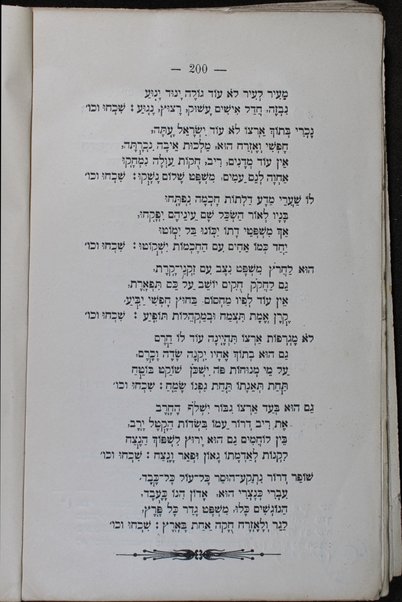 — 200 —
מֵעִיר לְעִיר לֹא עוֹד גּוֹלֶה יָנוּד יָנוּעַ
נִבְזֶה, חֲדַל אִישִׁים, עָשׁוּק, רָצוּץ, נָגוּעַ: שִׁכְחוּ וכו׳
נָכְרִי בְּתוֹךְ אַרְצוֹ לֹא עוֹד יִשְׂרָאֵל עַתָּה,
חָפְשִׁי וְאֶזְרָח הוּא, מַלְכוּת אֵיבָה נִכְרָתָה,
אֵין עוֹד מְדָנִים, רִיב, חֻקּוֹת עַוְלָה נִמְחָקוּ
אַחֲוָה לְגַם עַמִּים, מִשְׁפָּט שָׁלוֹם נָשָׁקוּ: שִׁכְחוּ וכו׳
לוֹ שַׁעֲרֵי מַדָּע דַּלְתוֹת חָכְמָה נִפְתָּחוּ
בָּנָיו לְאוֹר הַשֵּׂכֶל שָׁם עֵינֵיהֶם יִפְקָחוּ,
אַךְ מִשְׁפְּטֵי דָתוֹ יִכּוֹנוּ בַּל יִמּוֹטוּ
יַחַד כְּמוֹ אַחִים עִם הַחָכְמוֹת יִשְׁקוֹטוּ: שִׁכְחוּ וכו׳
הוּא לַחֲרֹץ מִשְׁפָּט נִצָּב עִם זִקְנֵי־קָרֶת,
גַּם לַחֲקֹק חֻקִּים יוֹשֵׁב עַל כֵּס תִּפְאָרֶת,
אֵין עוֹד לְפִיו מַחְסוֹם, בַּחוּץ חָפְשִׁי יַבִּיעַ,
קֶרֶן אֱמֶת תִּצְמַח וּבְמַקְהֵלוֹת תּוֹפִיעַ: שִׁכְחוּ וכו׳
לֹא מֶגְרָפוֹת אַרְצוֹ תִּהְיֶינָה עוֹד לוֹ חֵרֶם
גַּם הוּא בְתוֹךְ אֶחָיו יִקְנֶה שָׂדֶה וָכֶרֶם,
עַל מֵי מְנוּחוֹת פֹּה יִשְׁכֹּן שׁוֹקֵט בּוֹטֵחַ
תַּחַת תְּאֵנָתוֹ תַּחַת גַּפְנוֹ שָׂמֵחַ: שִׁכְחוּ וכו׳
גַּם הוּא בְּעַד אַרְצוֹ גִּבּוֹר יִשְׁלֹף הֶחָרֶב
אֶת רִיב דְּרוֹר עַמּוֹ בִּשְׂדוֹת הַקֶּטֶל יָרֶב,
בֵּין לוֹחֲמִים גַּם הוּא יָרוּץ לִשְׁפּוֹךְ הַנֵּצַח
לִקְנוֹת לְאַדְמָתוֹ גָּאוֹן וּפְאֵר וָנֵצַח: שִׁכְחוּ וכו׳
שׁוֹפַר דְּרוֹר נִתְקַע־הוּסַר כָּל־עוֹל כָּל־כֹּבֶד,
עִבְרִי כְּנָצְרִי הוּא, אָדוֹן הִנּוֹ כָעֶבֶד,
הַנּוֹגְשִׂים כָּלוּ, מִשְׁפָּט גָּדַר כָּל פֶּרֶץ,
לַגֵּר וְלָאֶזְרָח חֻקָּה אַחַת בָּאָרֶץ: שִׁכְחוּ וכו׳